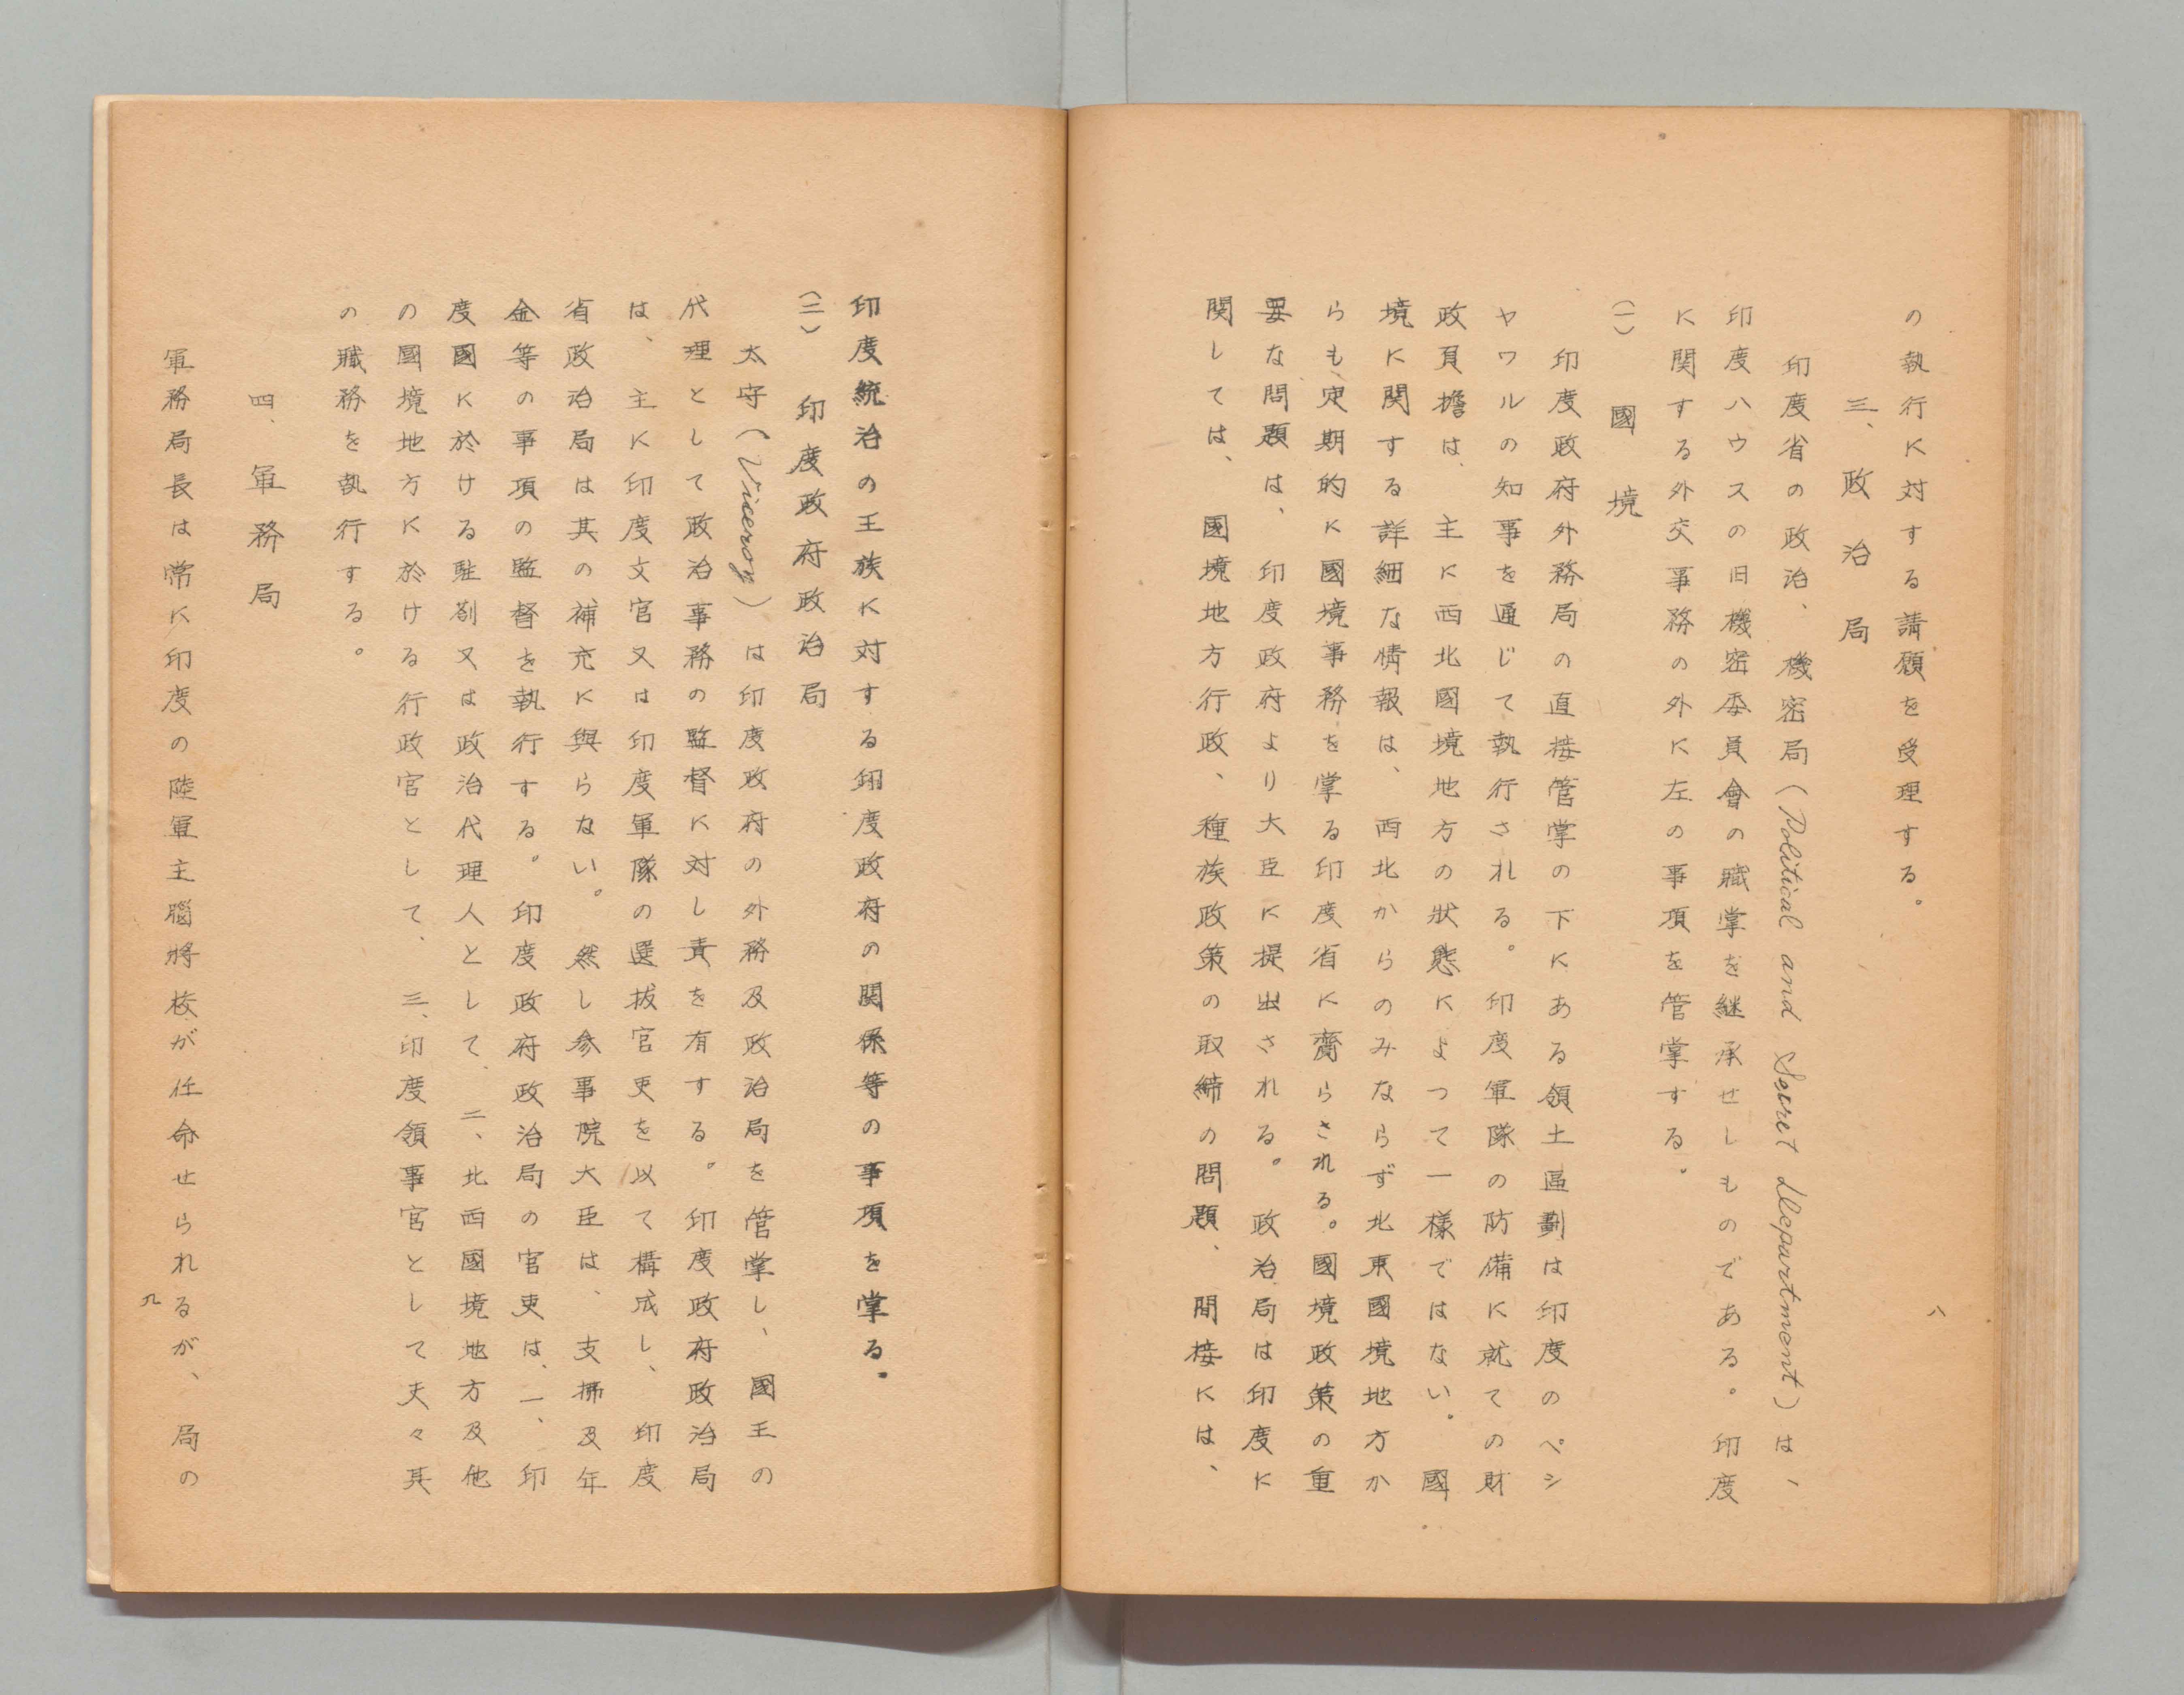 の執行に対する請願を受理する。
三、政治局
印度省の政治、機密局(Political and Secret Department)は、
印度ハウスの旧機密委員會の職掌を継承せしものである。印度
に関する外交事務の外に左の事項を管掌する。
(一) 國境
印度政府外務局の直接管掌の下にある領土區劃は印度のペシ
ヤワルの知事を通じて執行される。印度軍隊の防備に就ての財
政負擔は、主に西北國境地方の狀態によつて一様ではない。國
境に関する詳細な情報は、西北からのみならず北東國境地方か
らも定期的に國境事務を掌る印度省に齎らされる。國境政策の重
要な問題は、印度政府より大臣に提出される。政治局は印度に
関しては、國境地方行政、種族政策の取締の問題、間接には、
八
印度統治の王族に対する印度政府の関係等の事項を掌る。
(二) 印度政府政治局
太守(Viceroy)は印度政府の外務及政治局を管掌し、國王の
代理として政治事務の監督に対し責を有する。印度政府政治局
は、主に印度文官又は印度軍隊の選拔官吏を以て構成し、印度
省政治局は其の補充に與らない。然し参事院大臣は、支拂及年
金等の事項の監督を執行する。印度政府政治局の官吏は、一、印
度國に於ける駐剳又は政治代理人として、二、北西國境地方及他
の國境地方に於ける行政官として、三、印度領事官として夫々其
の職務を執行する。
四、軍務局
軍務局長は常に印度の陸軍主腦將校が任命せられるが、局の
九